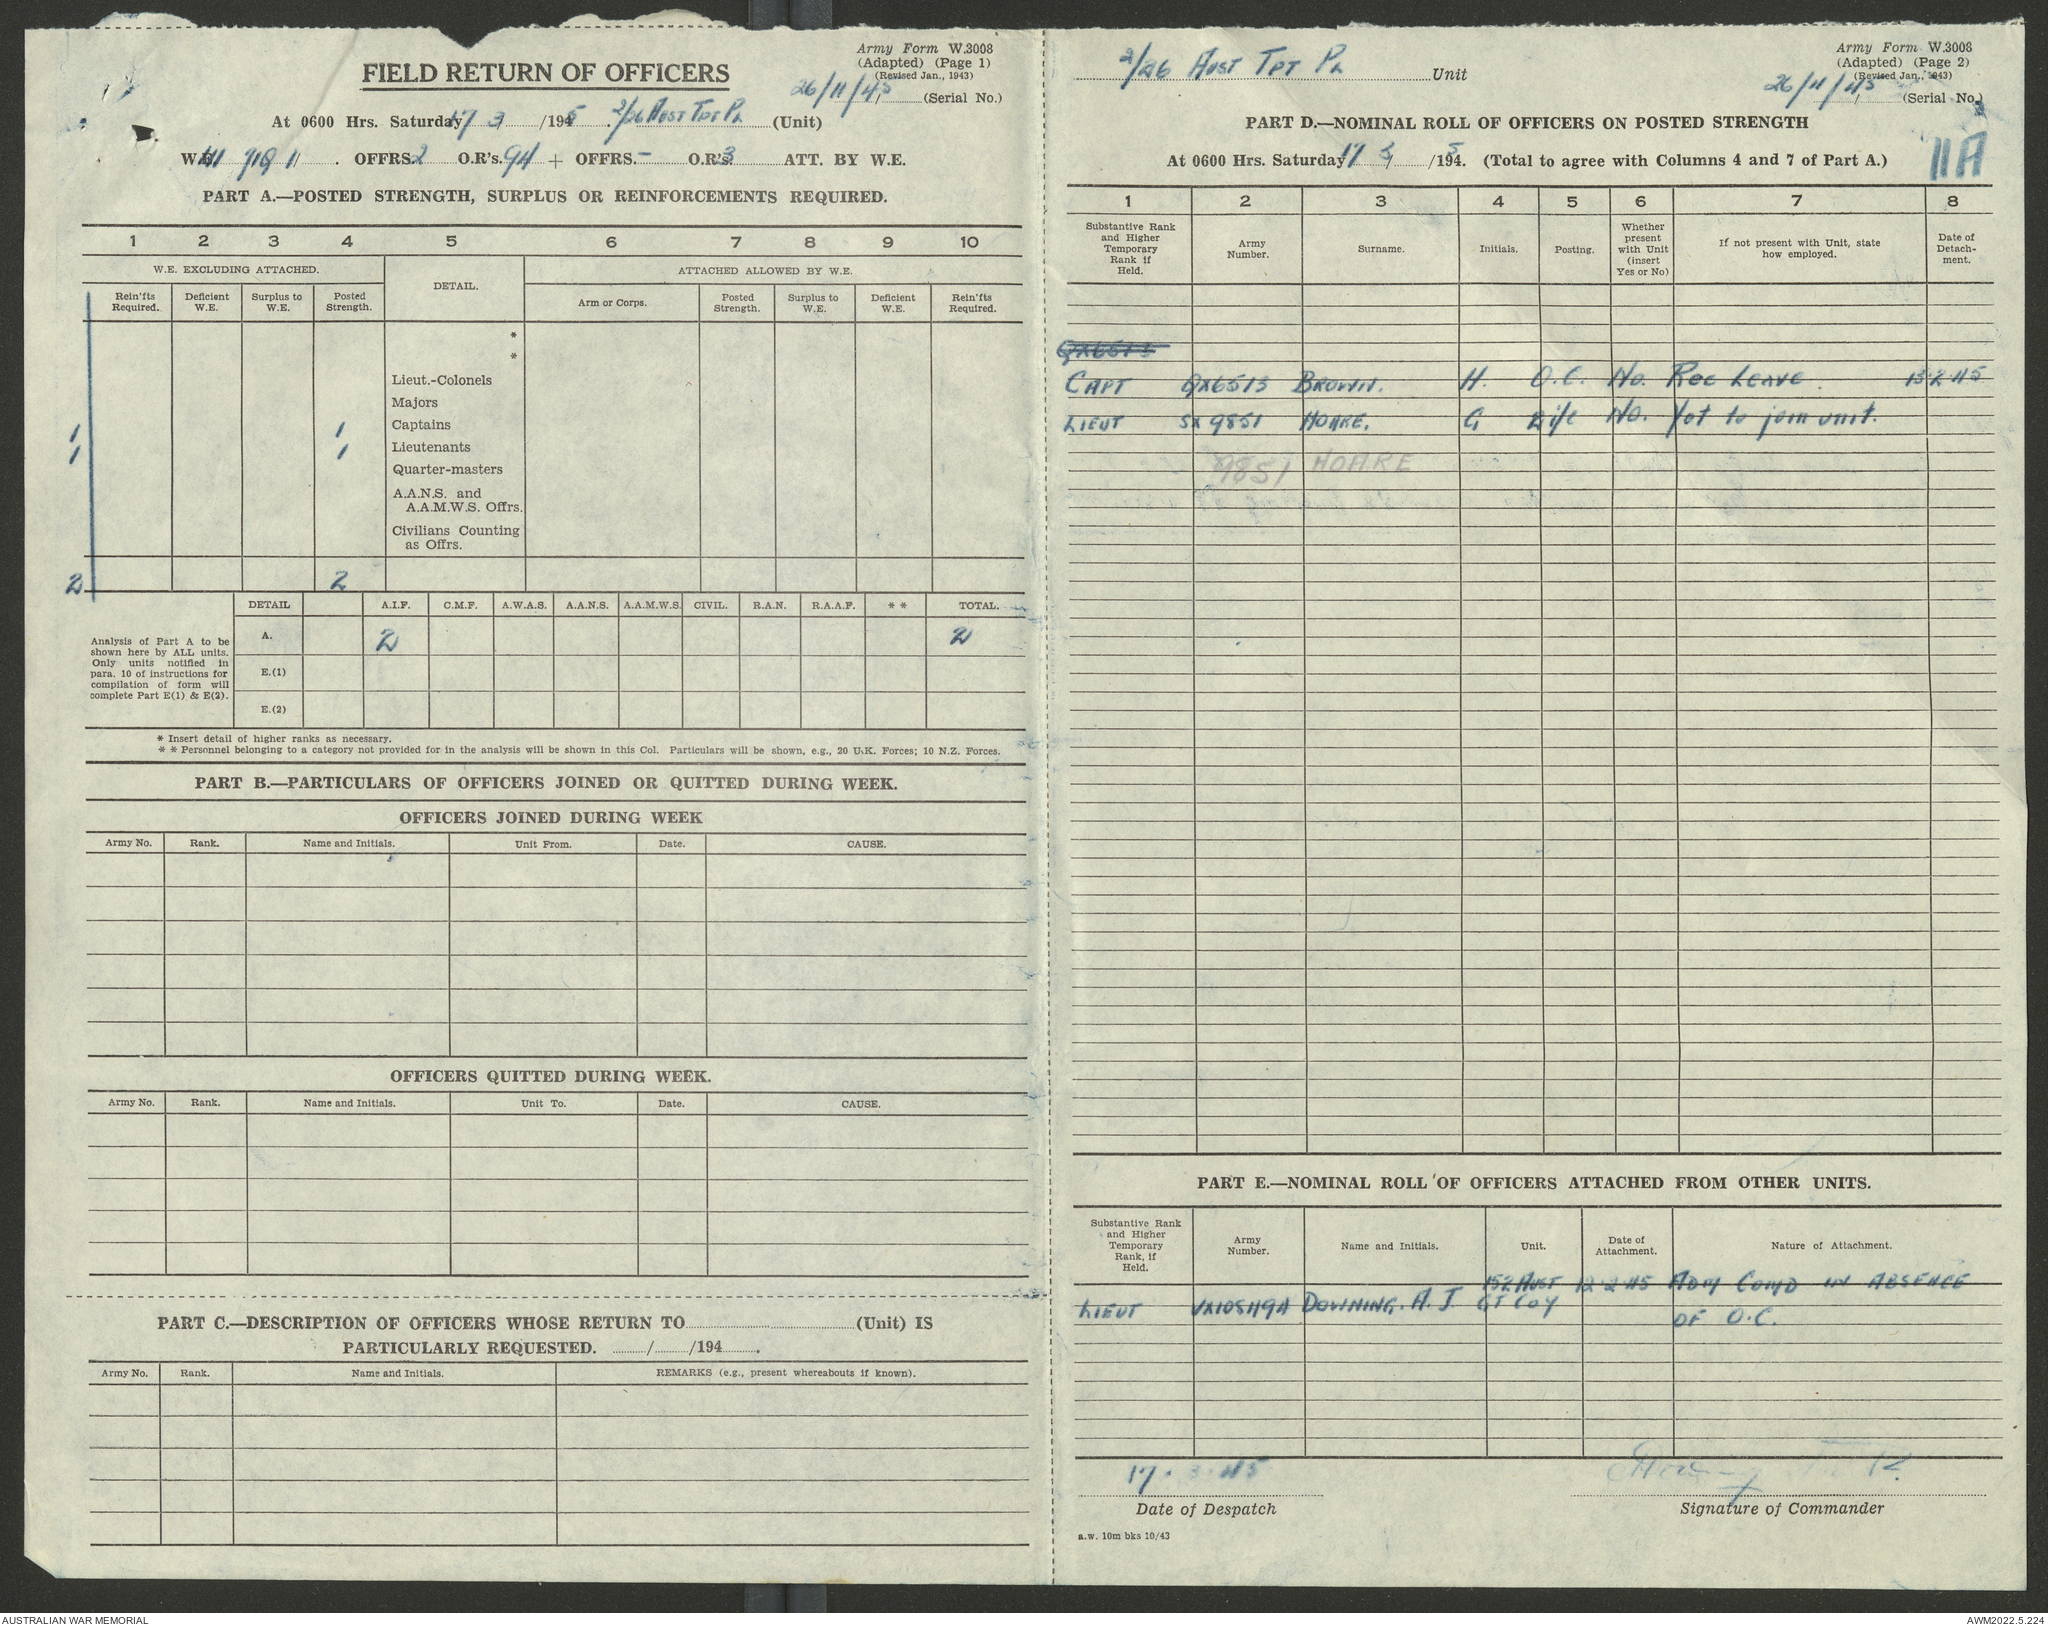 Army Form W.3008
(Adapted) (Page 1)
(Revised Jan., 1943)
FIELD RETURN OF OFFICERS
26/11/45 (Serial No.)
At 0600 Hrs. Saturday 17 3 /1945. 2/26 AUST TPT PL (Unit)
W.E. OFFRS. 2 O.R's. 94 + OFFRS. - O.R's. 3 ATT. BY W.E.
PART A.—POSTED STRENGTH, SURPLUS OR REINFORCEMENTS REQUIRED.
1 2 3 4 5 6 7 8 9 10
W.E. EXCLUDING ATTACHED. DETAIL. ATTACHED ALLOWED BY W.E.
Rein'fts Required. Deficient W.E. Surplus to W.E. Posted Strength. Arm or Corps. Posted Strength. Surplus to W.E. Deficient W.E. Rein'fts Required.
*
*
Lieut.-Colonels
Majors
1 1 Captains
1 1 Lieutenants
Quarter-masters
A.A.N.S. and
A.A.M.W.S. Offrs.
Civilians Counting
as Offrs.
2 2
DETAIL A.I.F. C.M.F. A.W.A.S. A.A.N.S. A.A.M.W.S. CIVIL. R.A.N. R.A.A.F. * * TOTAL.
A. 2 2
E.(1)
E.(2)
Analysis of Part A to be
shown here by ALL units.
Only units notified in
para. 10 of instructions for
compilation of form will
complete Part E(1) & E(2).
* Insert detail of higher ranks as necessary.
* * Personnel belonging to a category not provided for in the analysis will be shown in this Col. Particulars will be shown, e.g., 20 U.K. Forces; 10 N.Z. Forces.
PART B.—PARTICULARS OF OFFICERS JOINED OR QUITTED DURING WEEK.
OFFICERS JOINED DURING WEEK
Army No. Rank. Name and Initials. Unit From. Date. CAUSE.
OFFICERS QUITTED DURING WEEK.
Army No. Rank. Name and Initials. Unit To. Date. CAUSE.
PART C.—DESCRIPTION OF OFFICERS WHOSE RETURN TO (Unit) IS
PARTICULARLY REQUESTED. / /194 .
Army No. Rank. Name and Initials. REMARKS (e.g., present whereabouts if known).
2/26 AUST TPT PL Unit
Army Form W.3008
(Adapted) (Page 2)
(Revised Jan., 1943)
26/11/45 (Serial No.)
PART D.—NOMINAL ROLL OF OFFICERS ON POSTED STRENGTH
At 0600 Hrs. Saturday 17 3 /1945. (Total to agree with Columns 4 and 7 of Part A.)
11A
1 2 3 4 5 6 7 8
Substantive Rank and Higher Temporary Rank if Held. Army Number. Surname. Initials. Posting. Whether present with Unit (insert Yes or No) If not present with Unit, state how employed. Date of Detach-ment.
QX6513
CAPT QX6513 BROWN. H. O.C. No. REC LEAVE. 13.2.45
LIEUT SX9851 HOARE. G 2i/c No. Yet to join unit.
9851 HOARE
PART E.—NOMINAL ROLL OF OFFICERS ATTACHED FROM OTHER UNITS.
Substantive Rank and Higher Temporary Rank, if Held. Army Number. Name and Initials. Unit. Date of Attachment. Nature of Attachment.
152 AUST 12.2.45 ADM COMD IN ABSENCE
LIEUT VX105494 DOWNING. A. J. GT COY OF O.C.
17.3.45
Date of Despatch Signature of Commander
a.w. 10m bks 10/43
AUSTRALIAN WAR MEMORIAL AWM2022.5.224